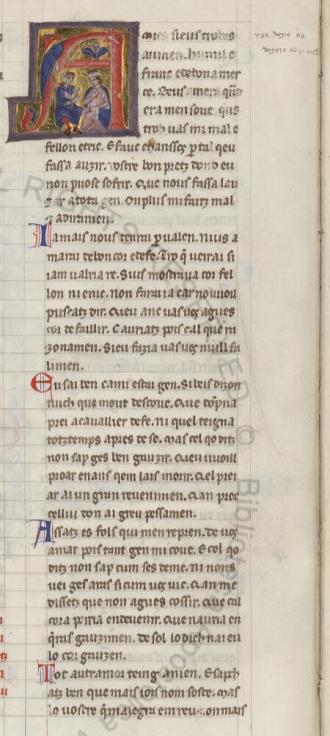 Amics sieus trobes
auinen. humil e
franc e de bona mer
ce. Beus amera quā
era men soue. qus
trob uas mi mal e
fellon e tric. E fauc chanssos p tal qeu
fassa auzir. uostre bon pretz don eu
non puosc sofrir. Que nous fassa lau
zar a tota gen. On plus mi faitz mal
& adirimen.
Iamais nous tenrai p ualen. Ni us a
marai de bon cor e de fe. Tro q ueirai si
iam ualria re. Sius mostraua cor fel
lon ni enic. Non farai ia car no uuoill
puscatz dir. Qu eu anc uas uos agues
cor de faillir. Cauriatz pois cal que ra
zonamen. Sieu fazia uas uos nuill fa
limen.
Eu sai ben cami estai gen. Si beis dizon
tuich que mout descoue. Que dōpna
prei a cauallier de se. ni quel teigna
totz temps apres de se. Mas cel qo ditz
non sap ges ben gauzir. Queu uuoill
proar enans qem lais morir. Quel prei
ar ai un gran reuenimen. Qan prec
cellui don ai greu pessamen.
Assatz es fols qui men repren. de uos
amar pois tant gen mi coue. E cel qo
ditz non sap cum ses de me. ni no us
uei ges aras si cum uos ui. Qan me
dissetz que non agues cossir. Que cal
cora poiria endeuenir. Que nauria en
qeras gauzimen. de sol lo dich nai eu
lo cor gauzen.
Tot autramor teing a nien. E sapch
atz ben que mais iois nom soste. Mas
lo uostre qmalegra em reue. on mais